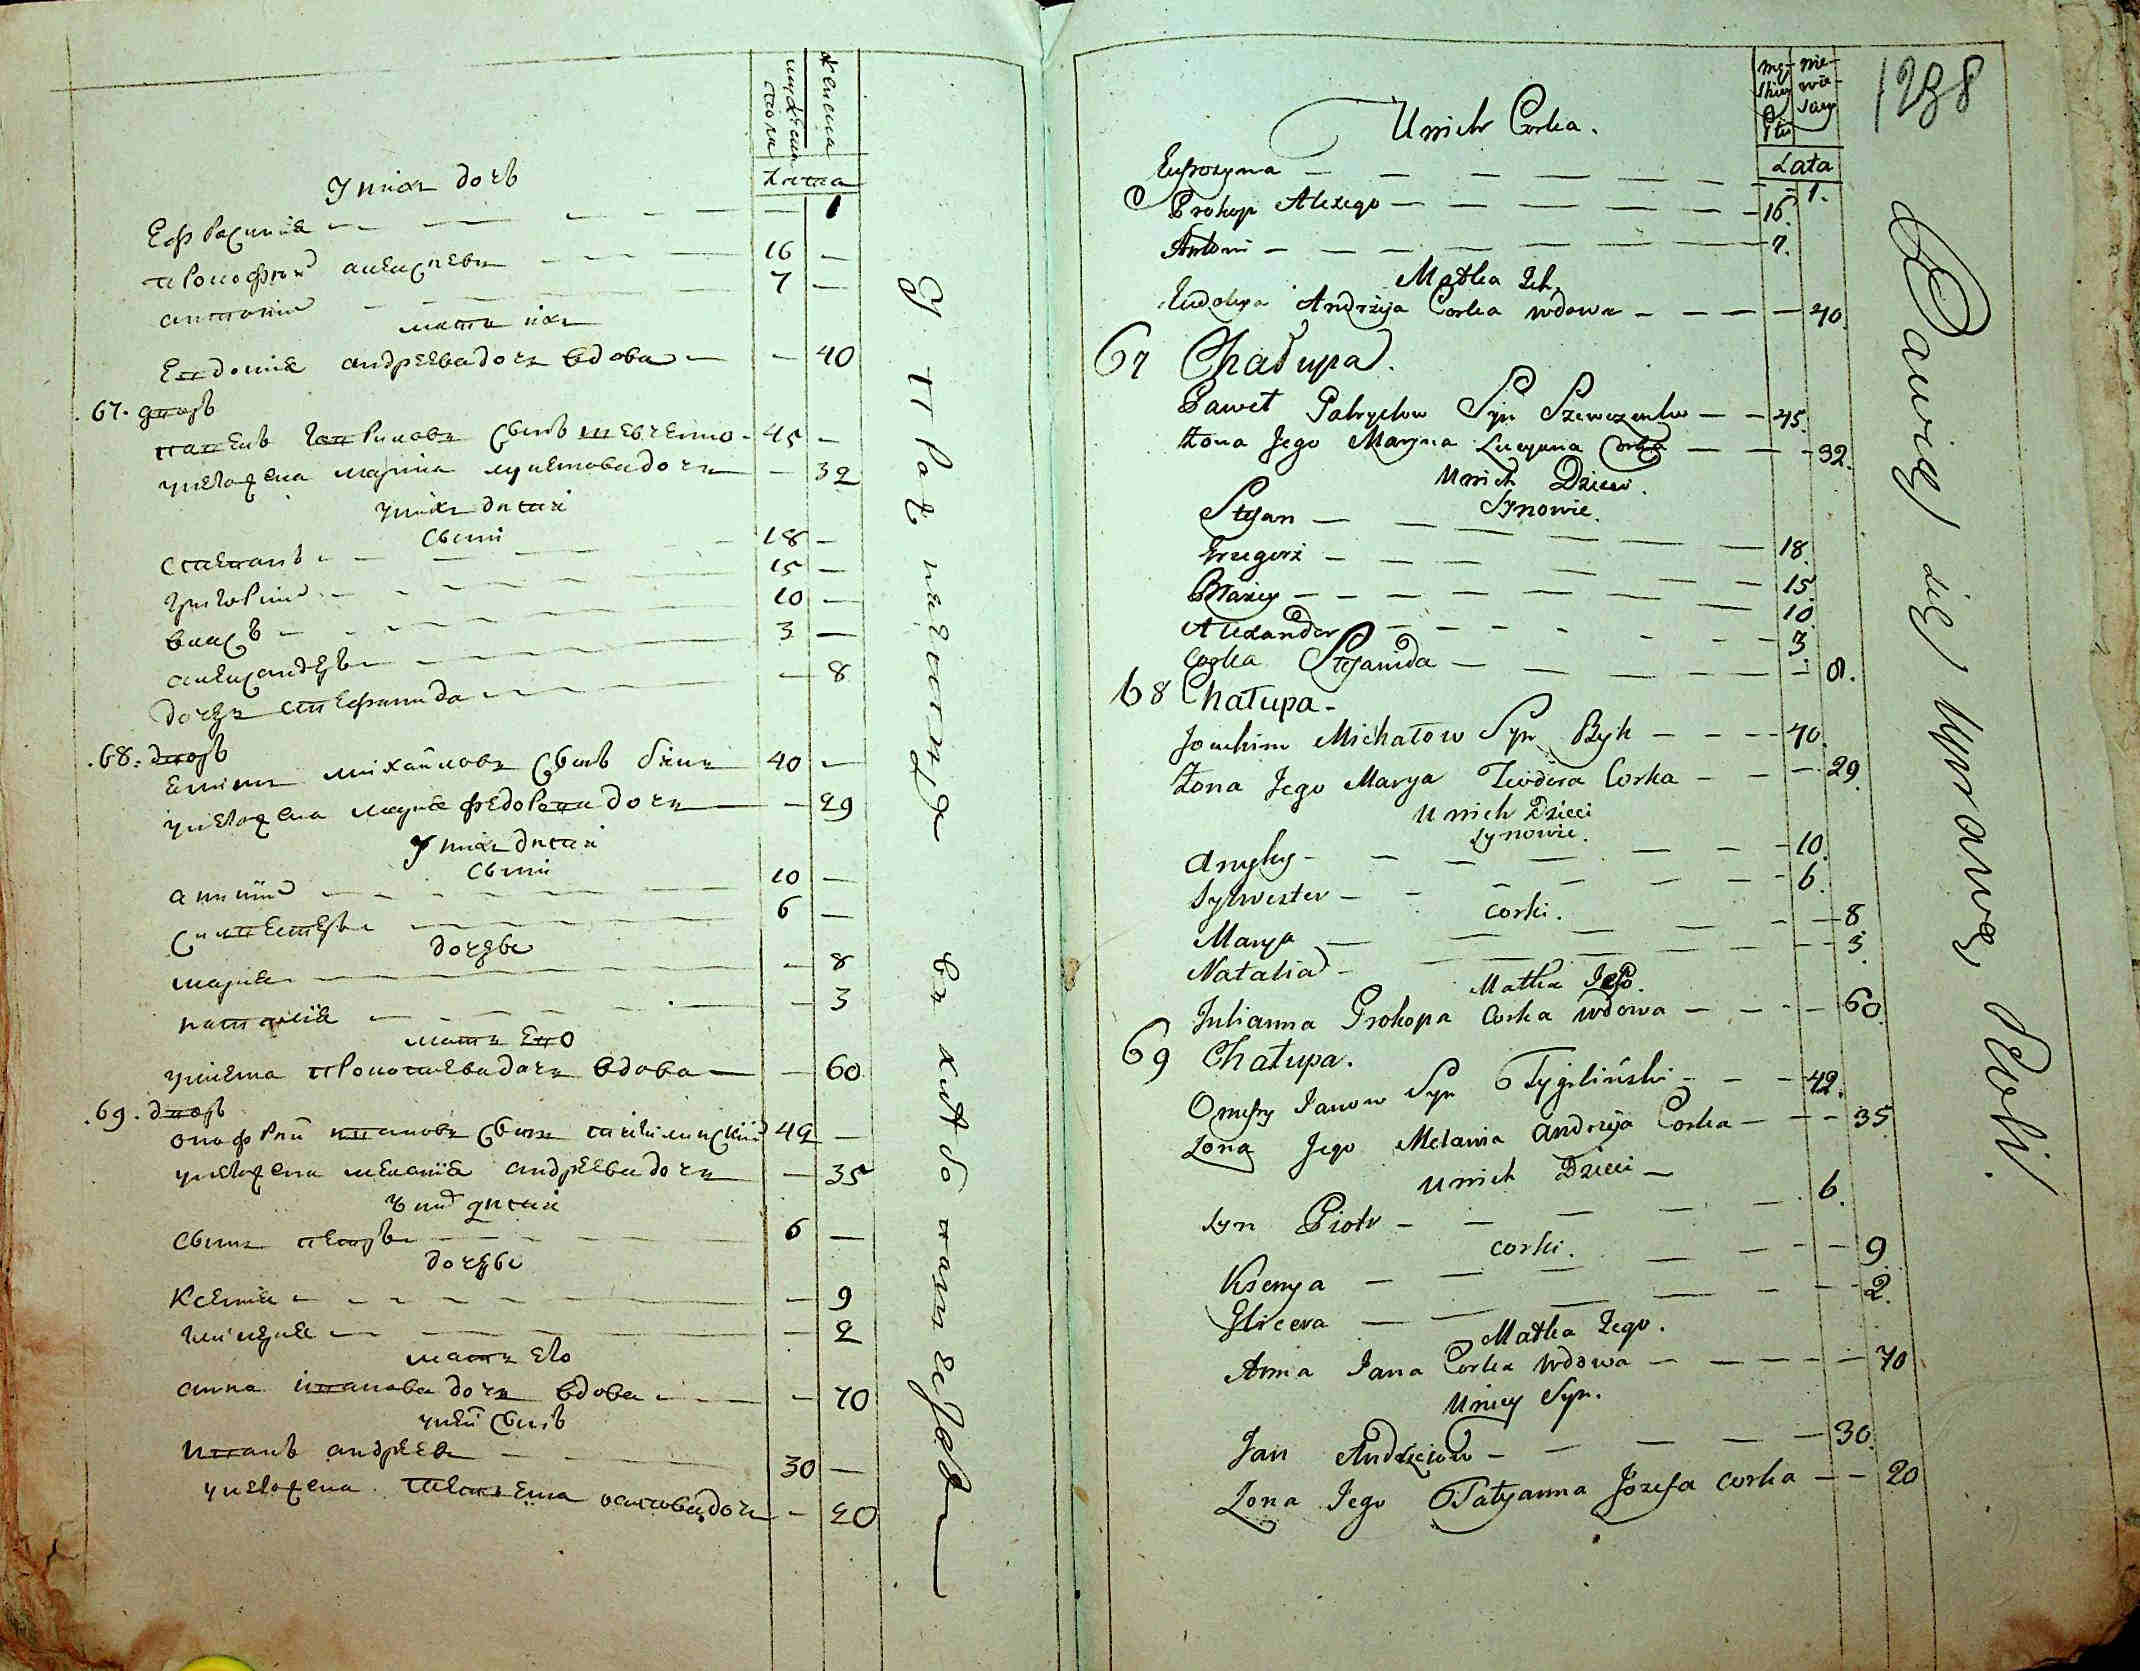 мужеска
пола
женска
лѣта
У них дочь
Ефросиния 1
Прокофий Алексѣевъ 16
Антоний 7
мать их
Евдокия андрѣева дочь вдова 40
67. дворъ
Павелъ Гавриловъ сынъ Шевченко 45
у него жена марина лукьянова дочь 32
у них дѣти
сыни
Степанъ 18
Григорий 15
Власъ 10
александеръ 3
дочерь Стефанида 8
68. дворъ
Еким михайловъ сынъ бик 40
у него жена мария федорова дочь 29
У них дѣти
сыни
аникий 10
Силвестеръ 6
дочери
мария 8
наталия 3
мать его
улияна прокопьева дочь вдова 60
69. дворъ
онофрий иванов сынъ тигилинский 42
у него жена мелания андрѣева дочь 35
у них дѣти
сынъ петръ 6
дочери
Ксения 9
гликерия 2
мать его
анна иванова дочь вдова 70
у ней сынъ
иванъ андрѣевъ 30
у него жена татияна осипова дочь 20
1238
męskiey Płci
niewiesciey
Lata
U nich Corka.
Eufrozyna 1.
Prokop Alexego 16.
Antoni 7.
Matka Ich.
Eudokya Andrzija Corka wdowa 40.
67 Chałupa.
Paweł Gabryelow Syn Szewczenko 45.
Żona Jego Maryna Lucyana Corka 32.
U nich Dzieci.
Synowie.
Stefan 18.
Grzegorz 15
Błażey 10
Alexander 3.
Corka Stefanida 8.
68 Chałupa.
Joachim Michałow Syn Byk 40.
Żona Jego Marya Teodora Corka 29.
U nich Dzieci
Synowie.
Anyky 10.
Sylwester 6.
Corki.
Marya 8.
Natalia 3.
Matka Jego.
Julianna Prokopa Corka wdowa 60.
69 Chałupa.
Onufry Janow Syn Tygilinski 42.
Żona Jego Melania Andrzija Corka 35
U nich Dzieci
Syn Piotr 6.
Corki.
Ksenya 9.
Glicera 2.
Matka Jego.
Anna Jana Corka wdowa 70
U niey Syn.
Jan Andrzeiow 30.
Żona Jego Tatyanna Józefa corka 20